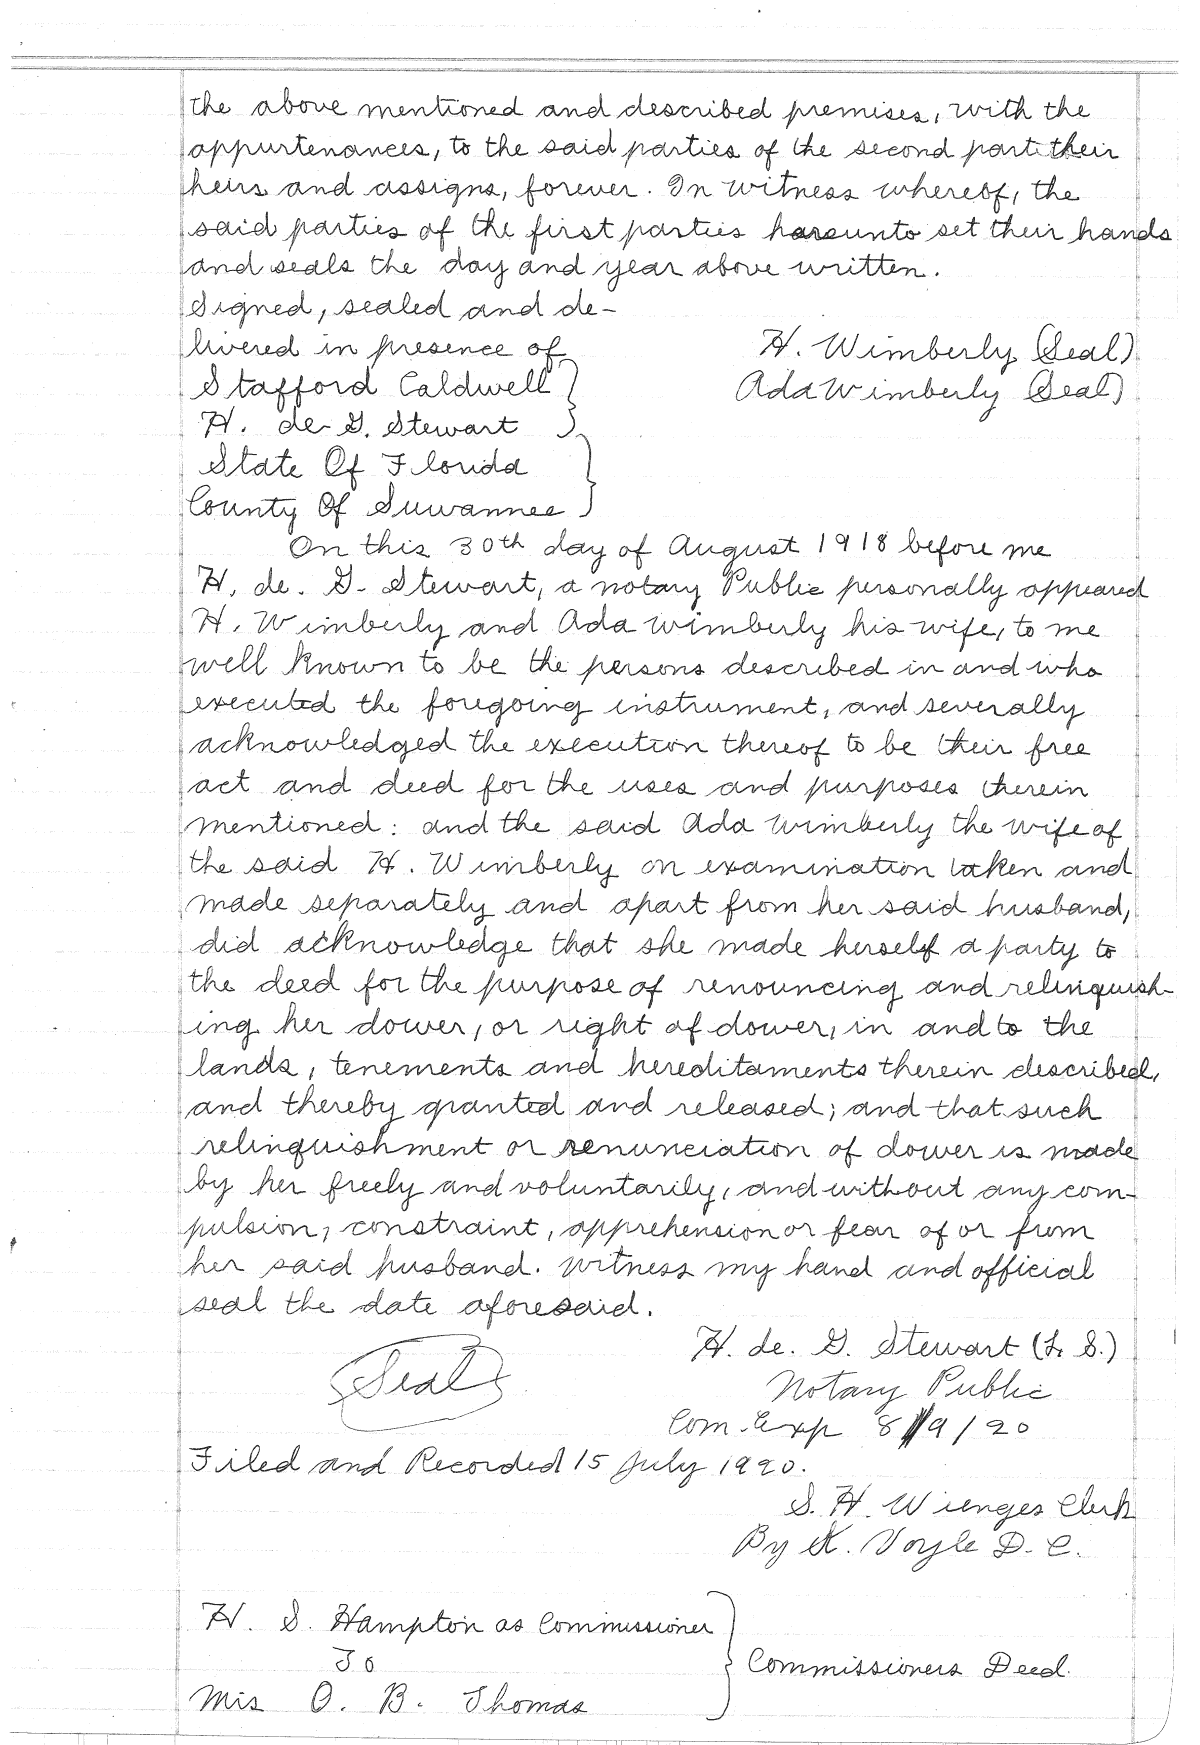 the above mentioned and described premises, with the
appurtenances, to the said parties of the second part their
heirs and assigns, forever. In witness whereof, the
said parties of the first parties hareunto set their hands
and seals the day and year above written.
Signed, sealed and de-
livered in presence of
H. Wimberly (Seal)
Stafford Caldwell
Ada Wimberly (Seal)
H. de G. Stewart
State Of Florida
County Of Suwannee
On this 30th day of August 1918 before me
H. de. G. Stewart, a notary Public personally appeared
H. Wimberly and Ada Wimberly his wife, to me
well known to be the persons described in and who
executed the foregoing instrument, and severally
acknowledged the execution thereof to be their free
act and deed for the uses and purposes therein
mentioned: and the said Ada Wimberly the wife of
the said H. Wimberly on examination taken and
made separately and apart from her said husband,
did acknowledge that she made herself a party to
the deed for the purpose of renouncing and relinquish-
ing her dower, or right of dower, in and to the
lands, tenements and hereditaments therein described,
and thereby granted and released; and that such
relinquishment or renunciation of dower is made
by her freely and voluntarily, and without any com-
pulsion, constraint, apprehension or fear of or from
her said husband. Witness my hand and official
seal the date aforesaid.
H. de. G. Stewart (L. S.)
Seal
Notary Public
Com. Exp 8/9/20
Filed and Recorded 15 July 1920.
S. H. Wienges Clerk
By K. Voyle D. C.
H. S. Hampton as Commissioner
To
Commissioners Deed.
Mis O. B. Thomas